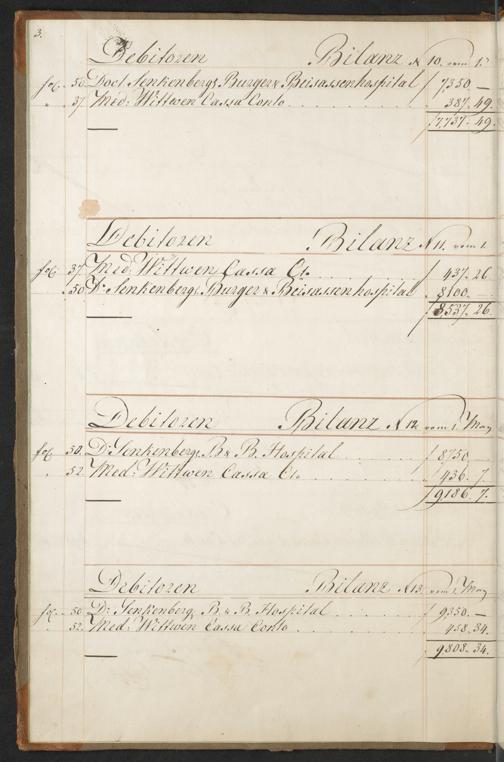 3.
Debitoren Bilanz N 10. vom 1.
fol. 50. Doct. Senkenbergs Burger & Beisassenhospital f 7350. —
" 37. Med: Wittwen Cassa Conto f 387. 49.
f 7737. 49.
Debitoren Bilanz N 11. vom 1.
fol. 37. Med: Wittwen Cassa Ct. f 437. 26
50. Dr. Senkenbergs Burger & Beisassenhospital 8100.
f 8537. 26.
Debitoren Bilanz N 12. vom 1. May
fol. 50. Dr. Senkenbergs B. & B. Hospital f 8750
" 52. Med: Wittwen Cassa Ct. 436. 7.
f 9186. 7.
Debitoren Bilanz N 13. vom 1. May
fol. 50. Dr. Senkenbergs B. & B. Hospital f 9350. —
" 52. Med: Wittwen Cassa Conto 458. 34.
f 9808. 34.